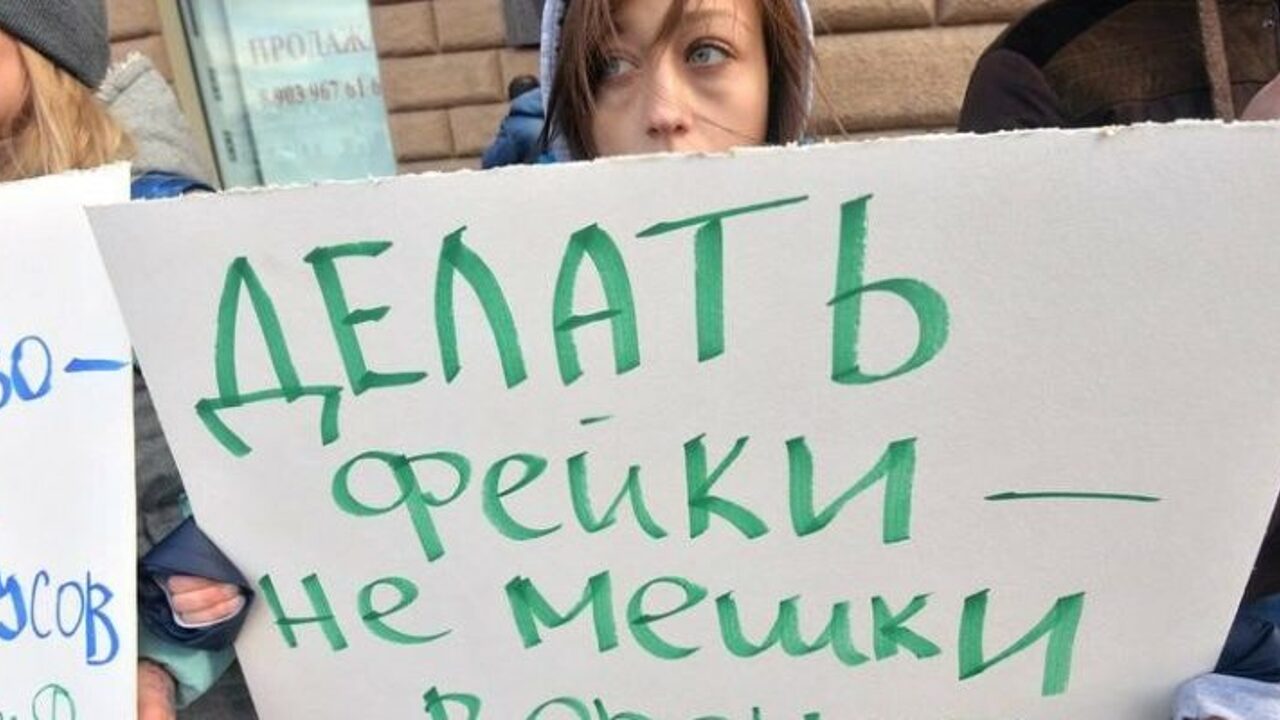 ПРОДАЖ
8 903 967 61 6
ДЕЛАТЬ
ФЕЙКИ —
НЕ МЕШКИ